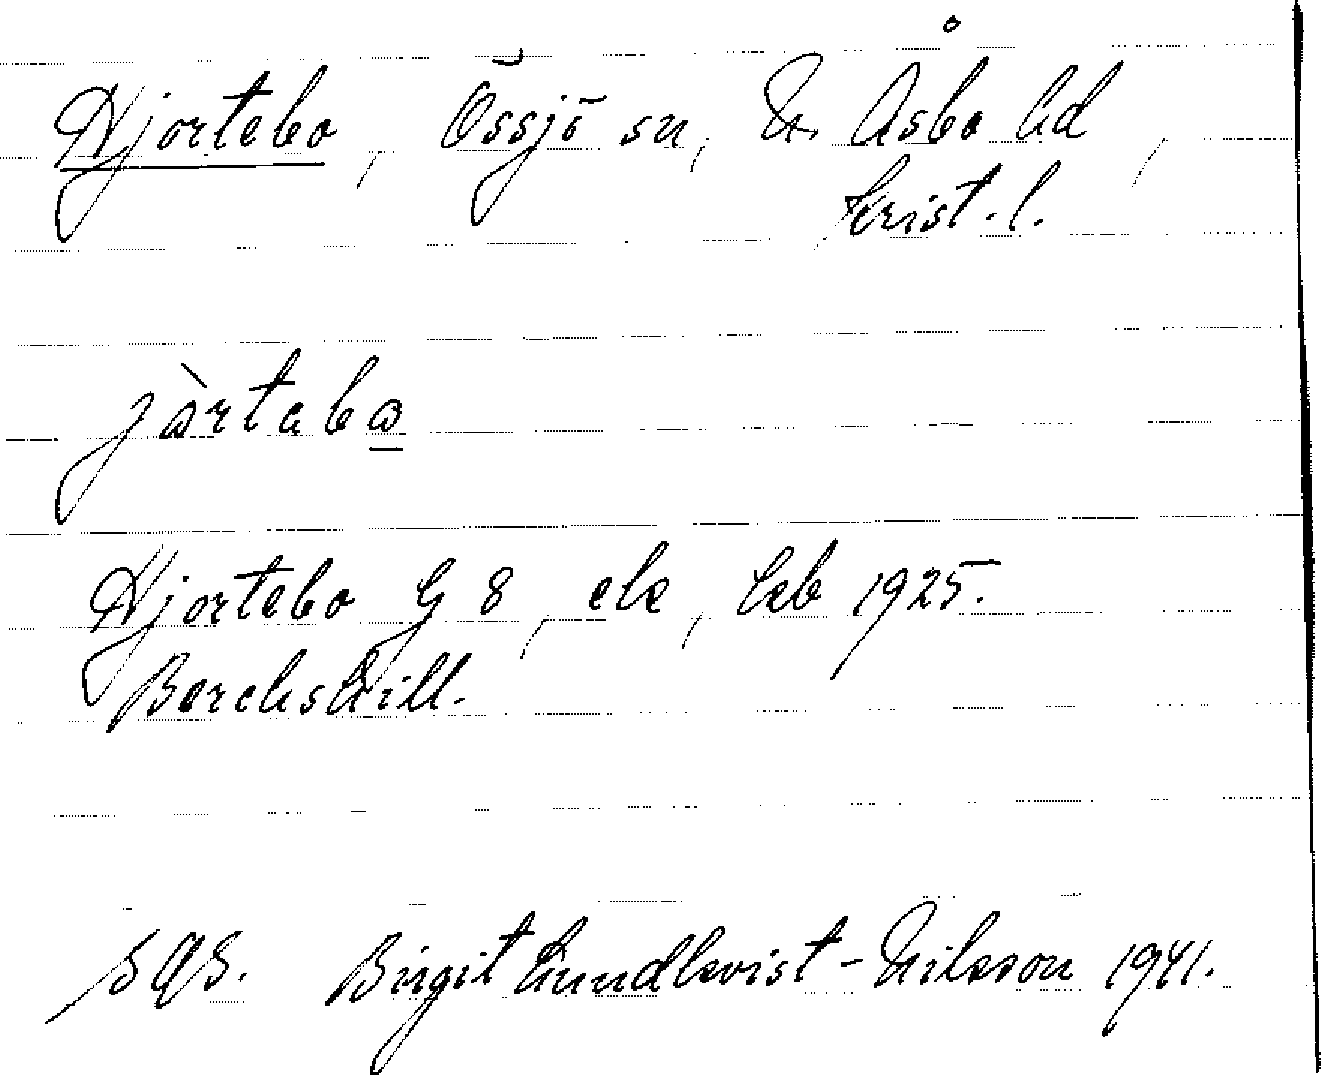 Hjortebo, Össjö sn, N. Åsbo hd,
Krist. l.
jàrtebo
Hjortebo G 8, ek, kb 1925.
SOS. Birgit Lundkvist-Nilsson 1941.